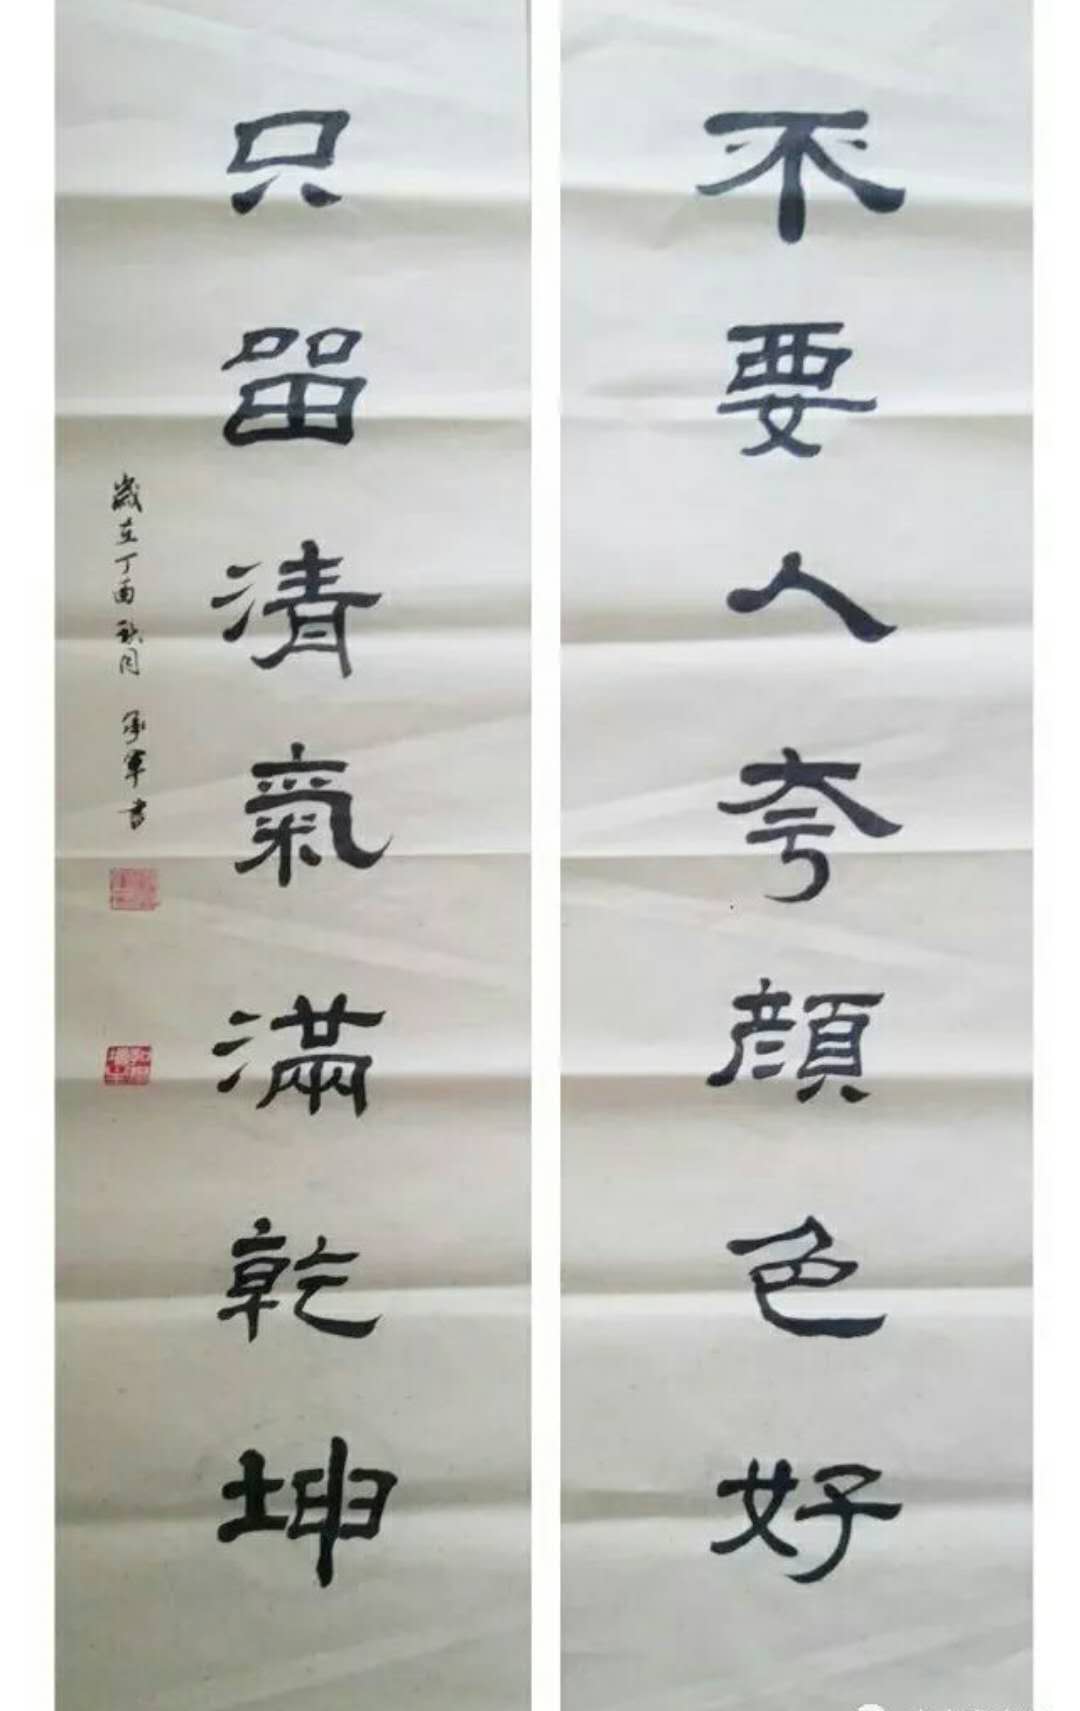 不要人夸顔色好
只留清氣滿乾坤
歲在丁酉秋月 承軍书